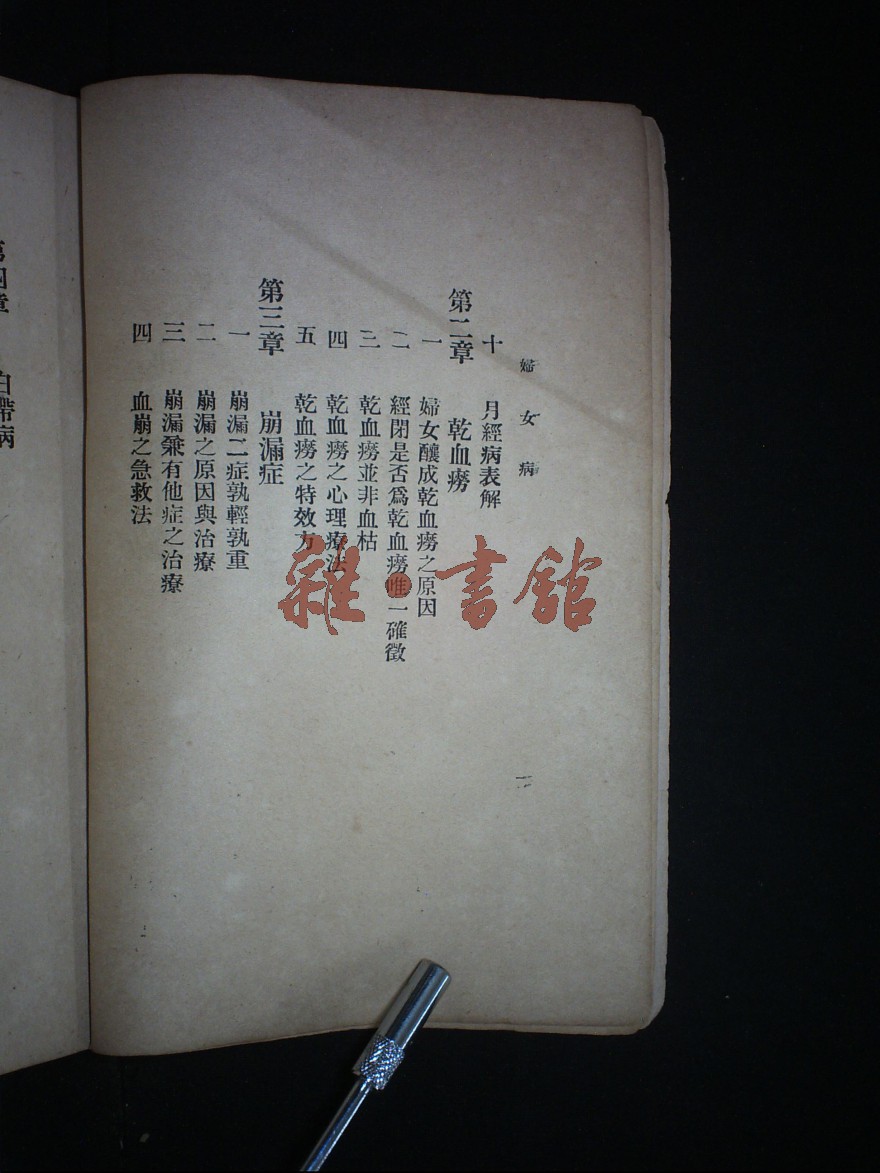 婦女病
十 月經病表解
第二章 乾血癆
一 婦女釀成乾血癆之原因
二 經閉是否爲乾血癆唯一確徵
三 乾血癆並非血枯
四 乾血癆之心理療法
五 乾血癆之特效方
第三章 崩漏症
一 崩漏二症孰輕孰重
二 崩漏之原因與治療
三 崩漏兼有他症之治療
四 血崩之急救法
二
第四章 白帶病
雜·書館